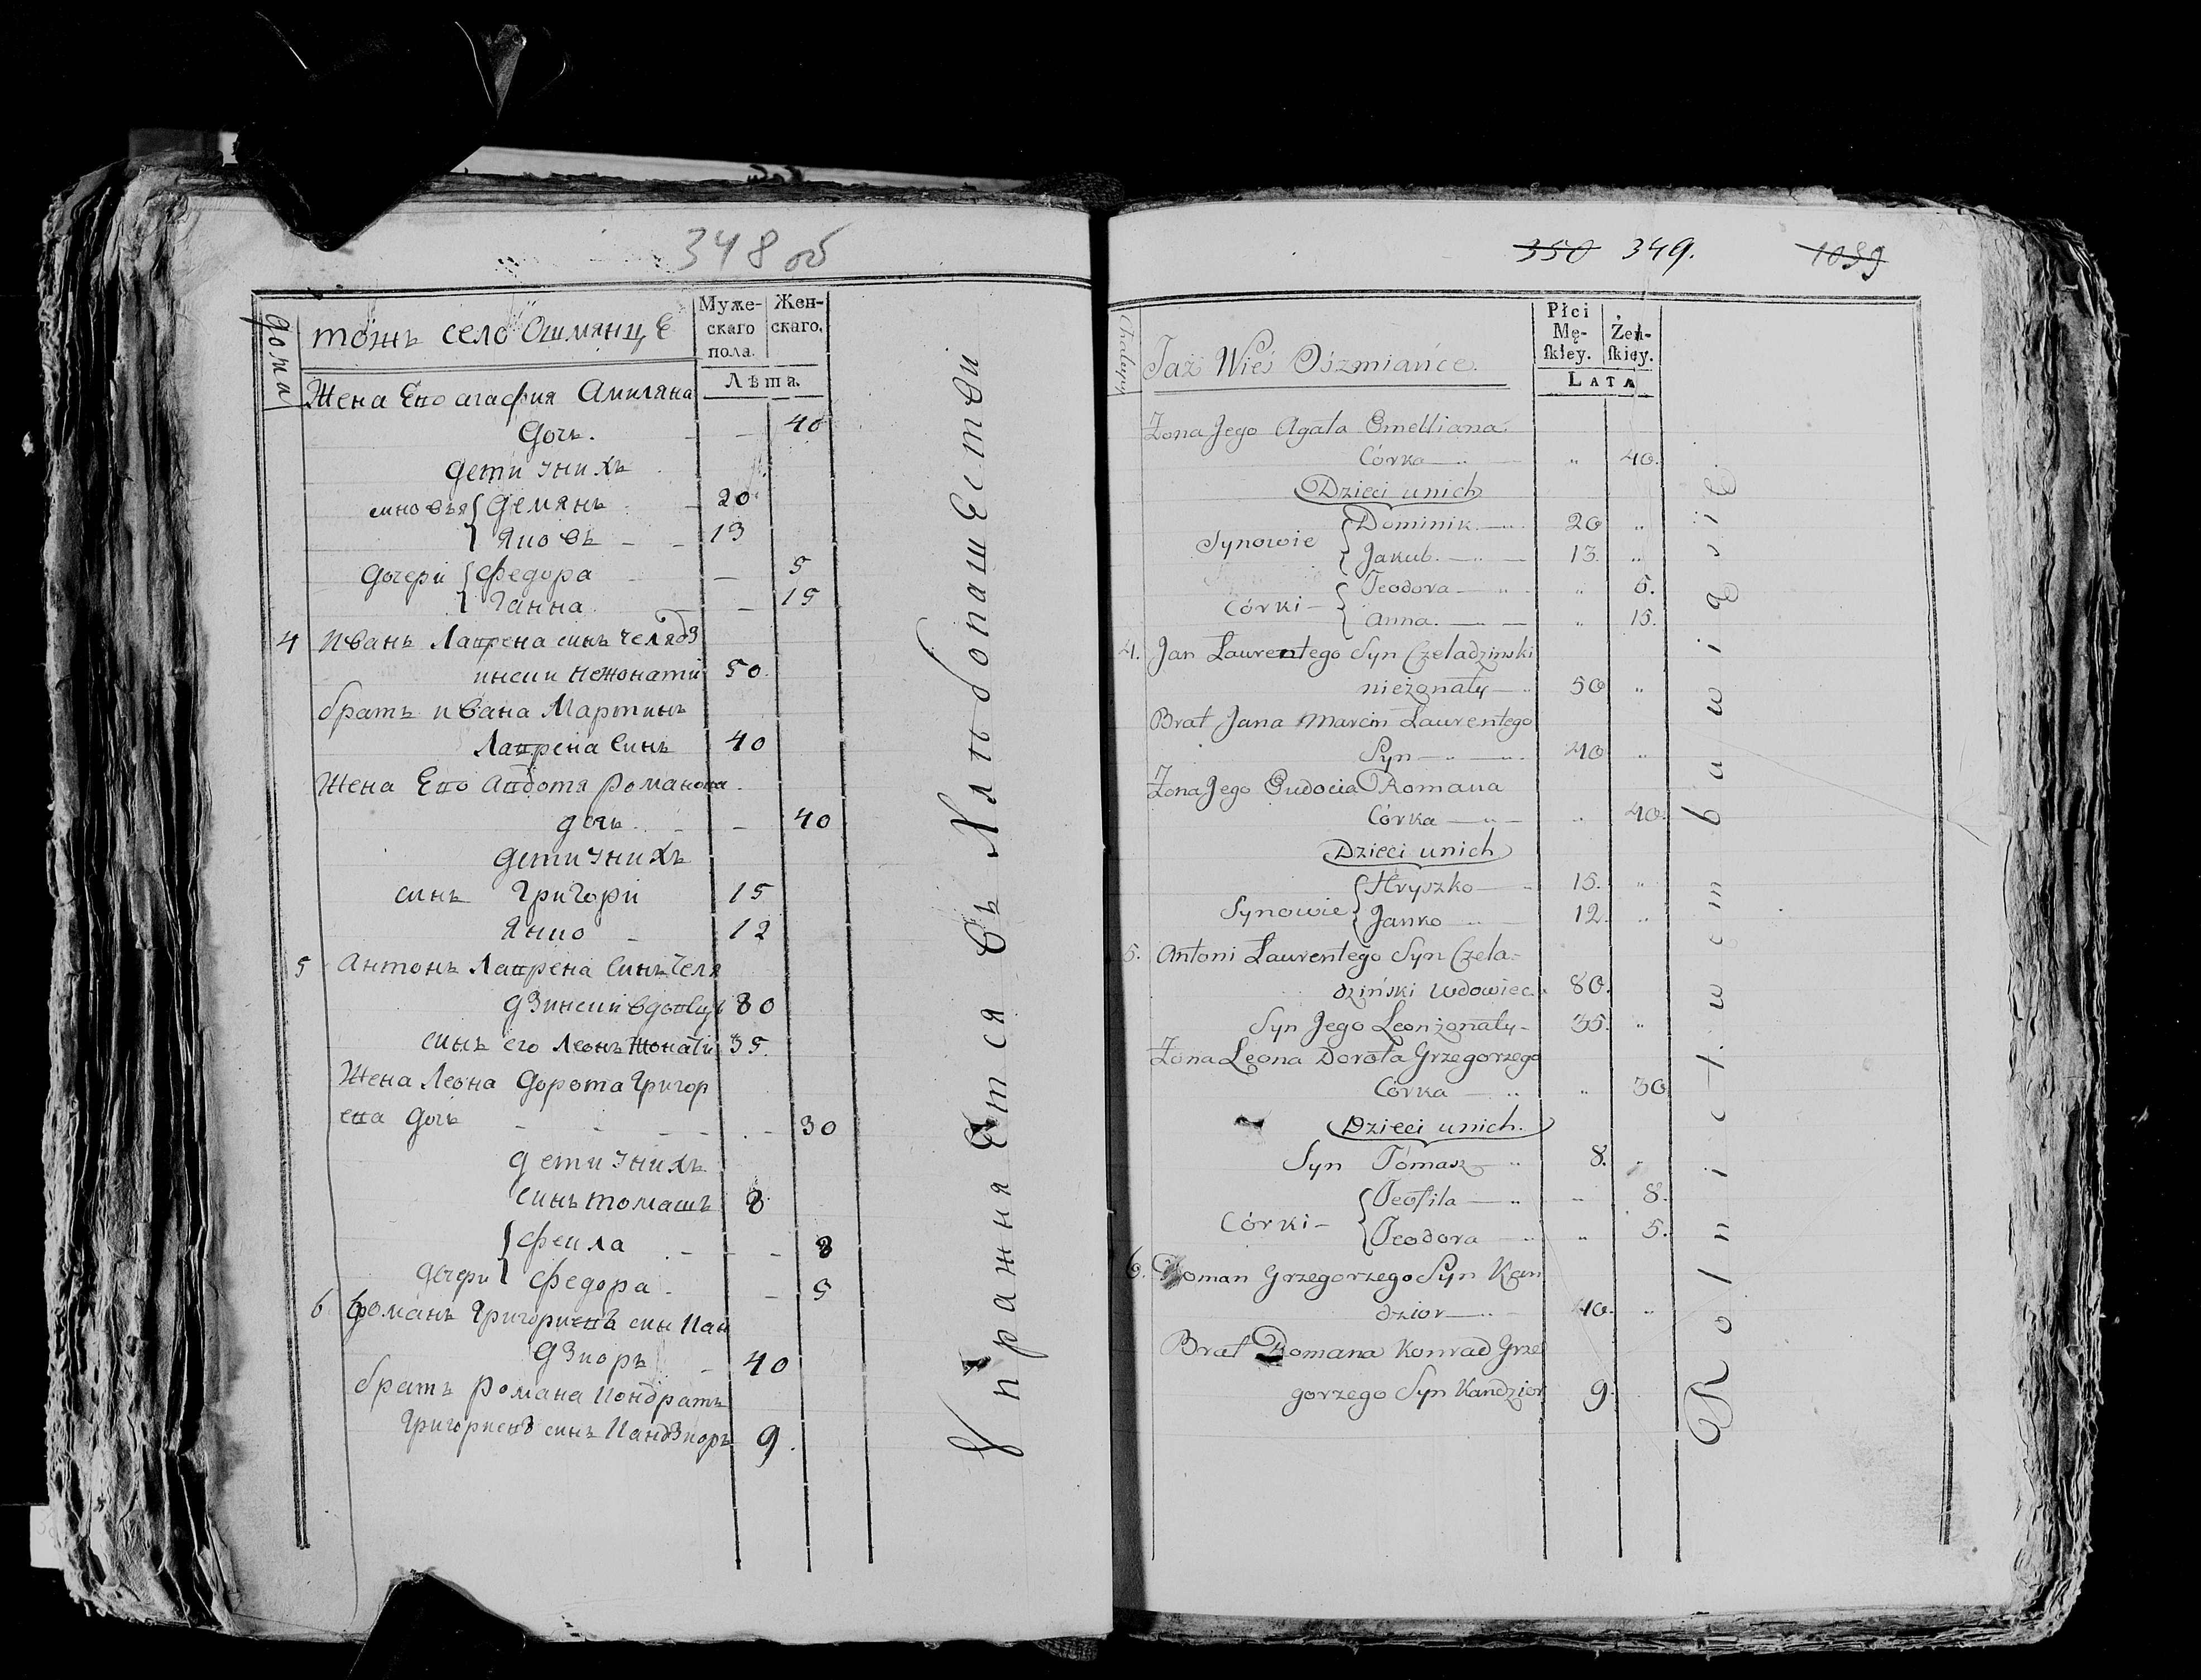 348 об
Дома
тожъ село Ошмянце
Муже-
скаго
пола.
Жен-
скаго.
Лѣта.
Жена Его агафия Амиляна
дочь. — 40
дети знихъ
синовья { Демянъ 20
{ Яковъ — 13
дочери { Федора — 5
{ Ганна — 15
4 Иванъ Лаврена синъ Челядз
инский нежонатий 50
братъ ивана Мартинъ
Лаврена Синъ 40
Жена Его Авдотя романова
дочь — 40
дети знихъ
синъ Григори 15
Янко — 12
5 Антонъ Лаврена Синъ Челя
дзинский вдовецъ 80
синъ его Леонъ жонатий 35
Жена Леона Дорота Григор
ева дочь — 30
дети знихъ
синъ томашъ 8
{ фекла — 8
дочери { Федора — 5
6 романъ Григориевъ син Кан
дзиоръ — 40
братъ романа Кондратъ
Григориевъ синъ Кандзиоръ 9.
Упражняется въ Хлебопашестви
350 349. 1089
Chałupy
Taż Wieś Oszmiańce.
Płci
Mę-
ſkiey.
Żeń-
ſkiey.
LATA
Żona Jego Agata Emelliana
Córka — " 40.
Dzieci unich
Synowie { Dominik — 20 "
{ Jakub. — 13. "
Córki — { Teodora — " 5.
{ Anna. — " 15.
4. Jan Laurentego Syn Czeladzinski
nieżonaty — 50 "
Brat Jana Marcin Laurentego
Syn — 40 "
Żona Jego Eudocia Romana
Córka — " 40.
Dzieci unich
Synowie { Hryszko — 15. "
{ Janko — 12. "
5. Antoni Laurentego Syn Czela-
dziński wdowiec. 80.
Syn Jego Leon żonaty — 35. "
Żona Leona Dorota Grzegorzego
Córka — " 30
Dzieci unich.
Syn Tómasz — 8. "
Córki — { Teofila — " 8.
{ Teodora — " 5.
6. Roman Grzegorzego Syn Kan
dzior — 40. "
Brat Romana Konrad Grze
gorzego Syn Kandzior 9.
Rolnictwem bawią się.